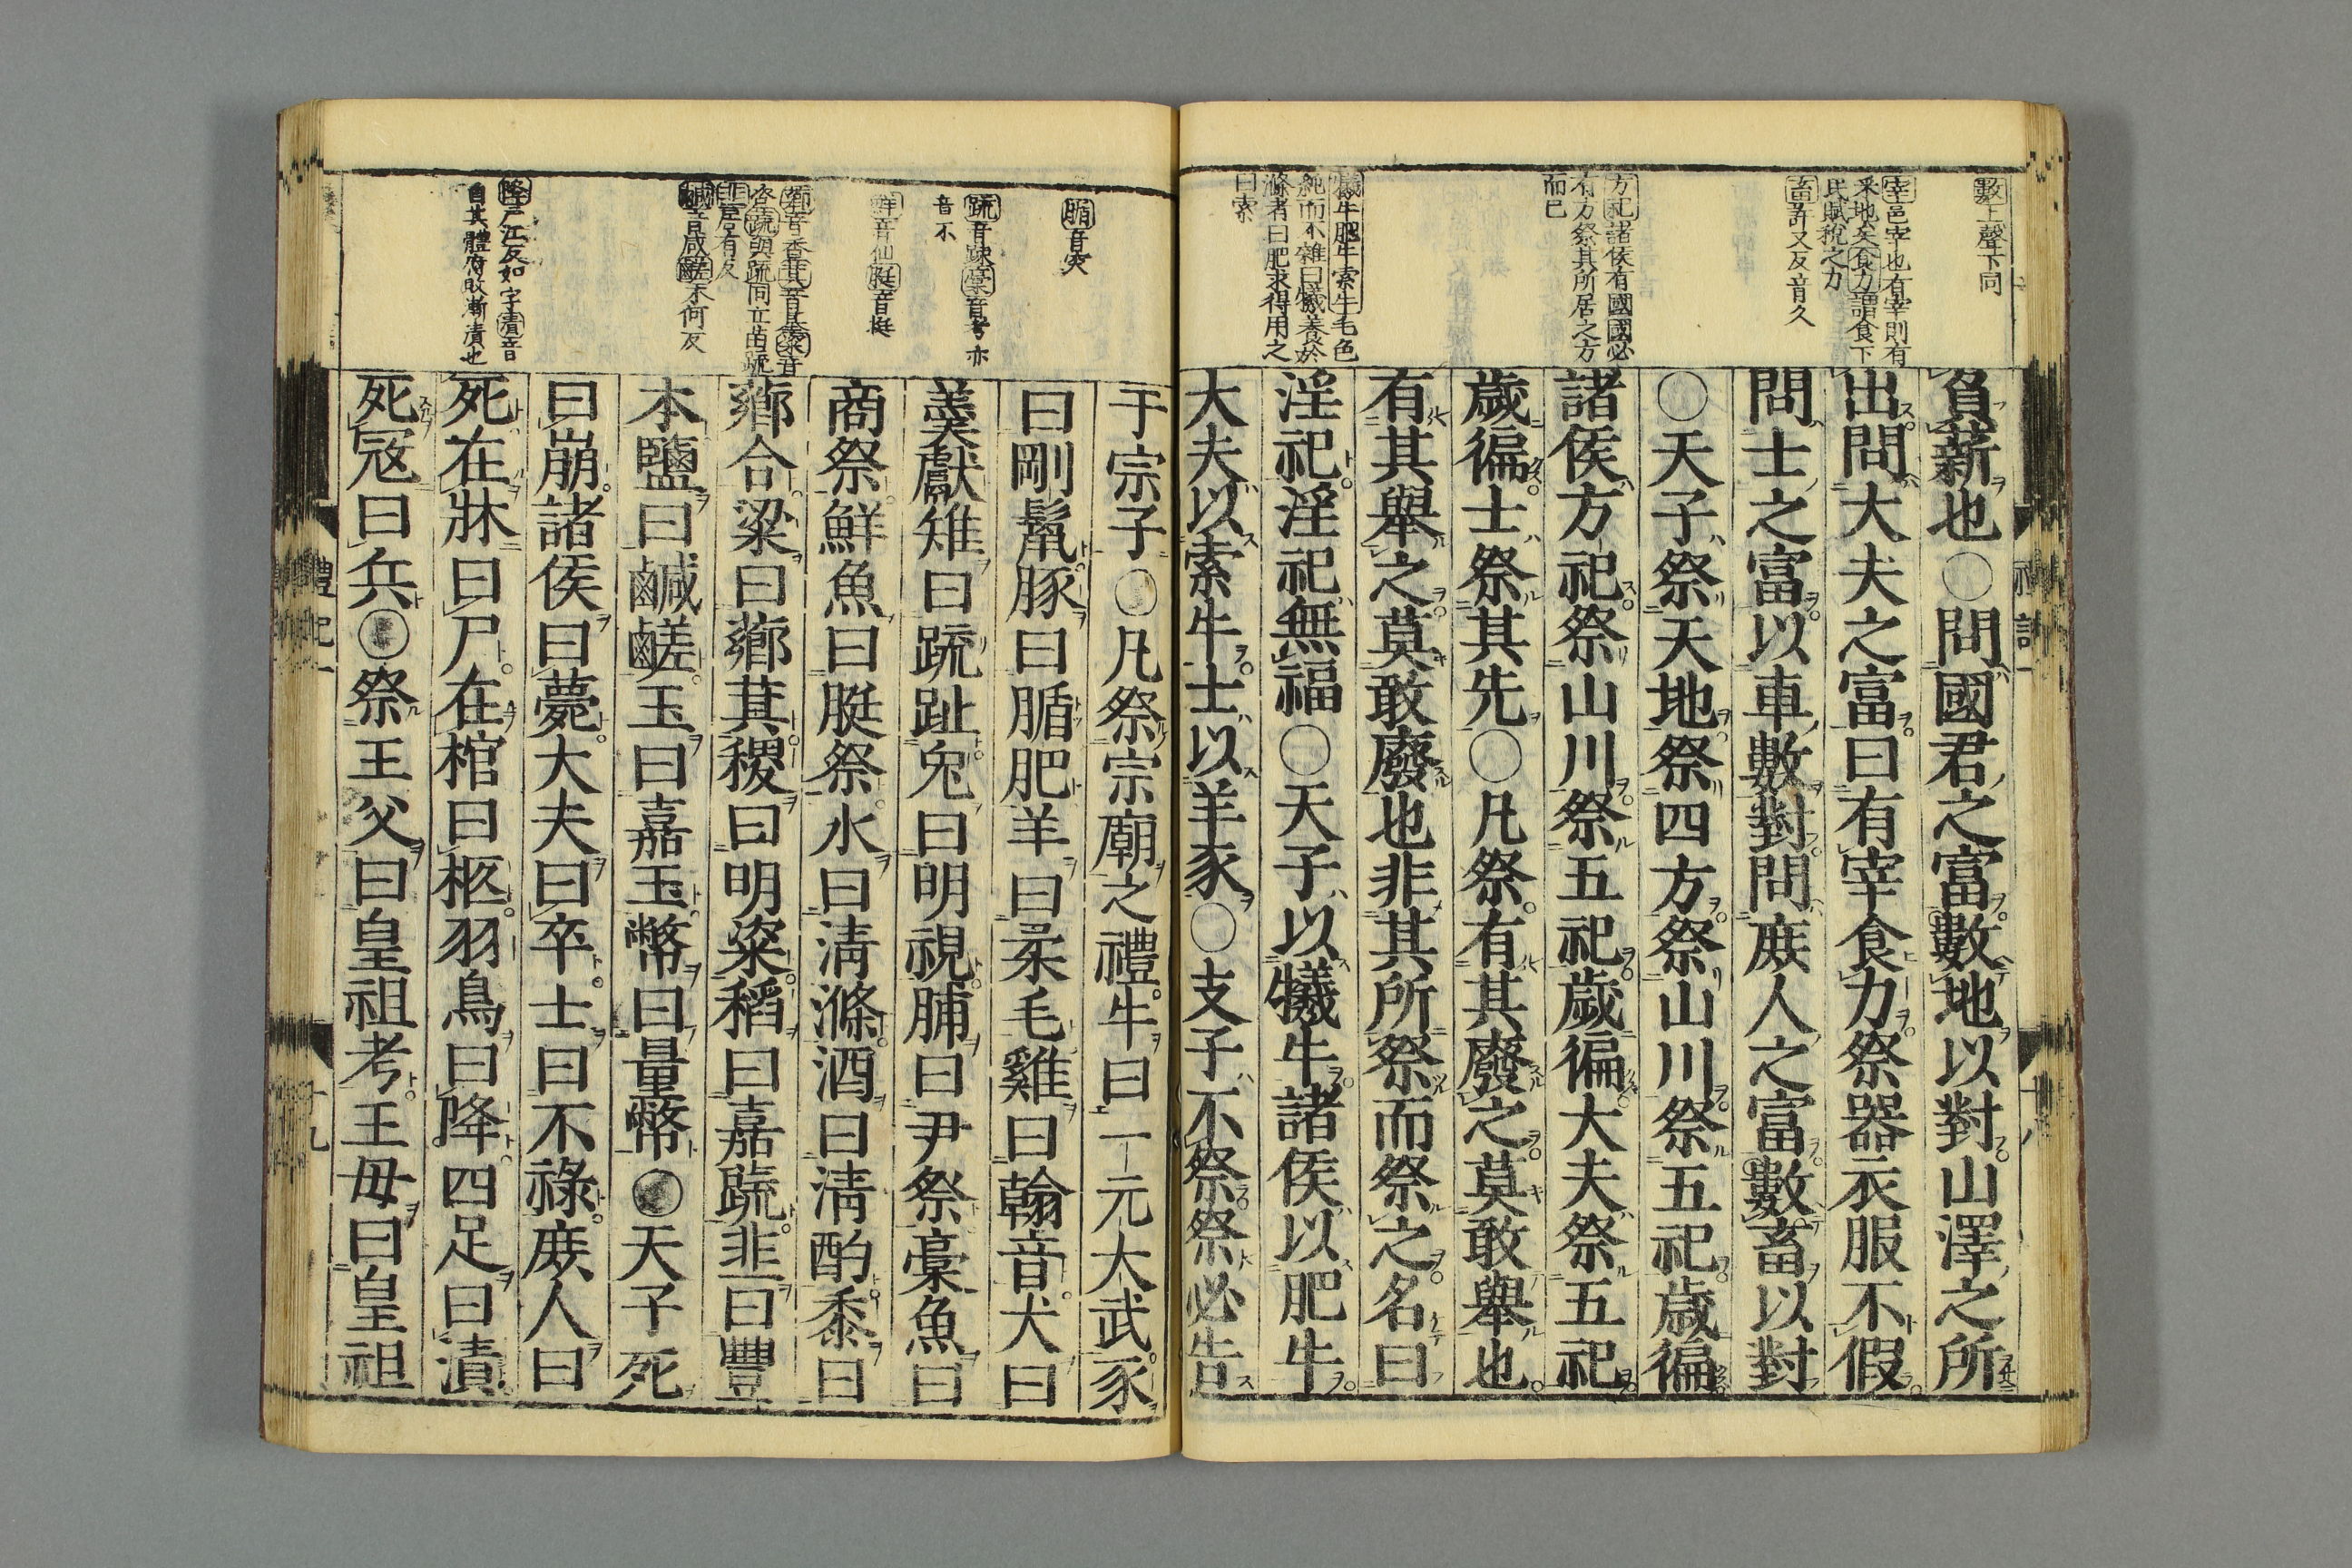 數上聲下同
宰邑宰也有宰則有
釆地矣食力謂食下
民賦稅之力
畜許又反音久
方祀諸侯有國國必
有方祭其所居之方
而已
犧牛肥牛索牛毛色
純而不雜曰犧養於
滌者曰肥求得用之
曰索
負薪也○問國君之富數地以對山澤之所
出問大夫之富曰有宰食力祭器衣服不假
問士之富以車數對問庻人之富數畜以對
○天子祭天地祭四方祭山川祭五祀歳徧
諸侯方祀祭山川祭五祀歲徧大夫祭五祀
歲徧士祭其先○凡祭有其廢之莫敢舉也
有其舉之莫敢廢也非其所祭而祭之名曰
淫祀淫祀無福○天子以犧牛諸侯以肥牛
大夫以索牛士以羊豕○支子不祭祭必告
腯音突
疏音踈稾音考亦
音不
鮮音仙脡音挺
薌音香萁音基粢音
咨䟽與疏同立苗䟽
韭居有反
鹹音咸鹺才何反
降戸江反如字漬音
自其體腐敗漸漬也
于宗子○凡祭宗廟之禮牛曰一元大武豕
曰剛鬛豚曰腯肥羊曰柔毛雞曰翰音犬曰
羹獻雉曰疏趾兔曰明視脯曰尹祭稾魚曰
商祭鮮魚曰脡祭水曰淸滌酒曰淸酌黍曰
薌合粱曰薌萁稷曰明粢稻曰嘉䟽韭曰豐
本鹽曰鹹鹺玉曰嘉玉幣曰量幣○天子死
曰崩諸侯曰薨大夫曰卒士曰不祿庻人曰
死在牀曰尸在棺曰柩羽鳥曰降四足曰漬
死冦曰兵○祭王父曰皇祖考王母曰皇祖
禮記一
十九